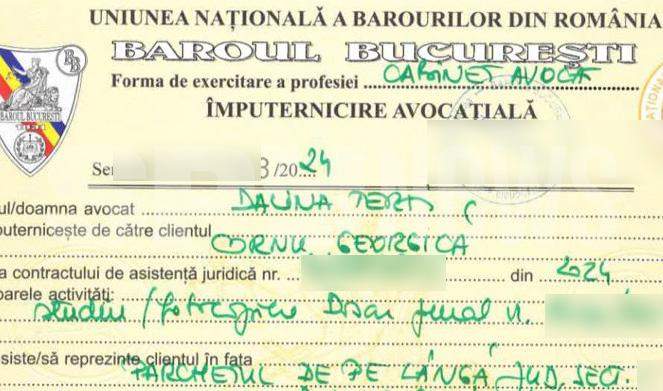 UNIUNEA NAȚIONALĂ A BAROURILOR DIN ROMÂNIA
BAROUL BUCUREȘTI
Forma de exercitare a profesiei CABINET AVOCAT
BAROUL BUCUREȘTI
ÎMPUTERNICIRE AVOCAȚIALĂ
Se 3/2024
ul/doamna avocat DALINA
puternicește de către clientul CORNU GEORGICA
a contractului de asistență juridică nr. din 2024
oarele activități:
studiu / fotocopiere Dosar penal nr.
siste/să reprezinte clientul în fața
PARCHETUL DE PE LÂNGĂ JUD. SECT.